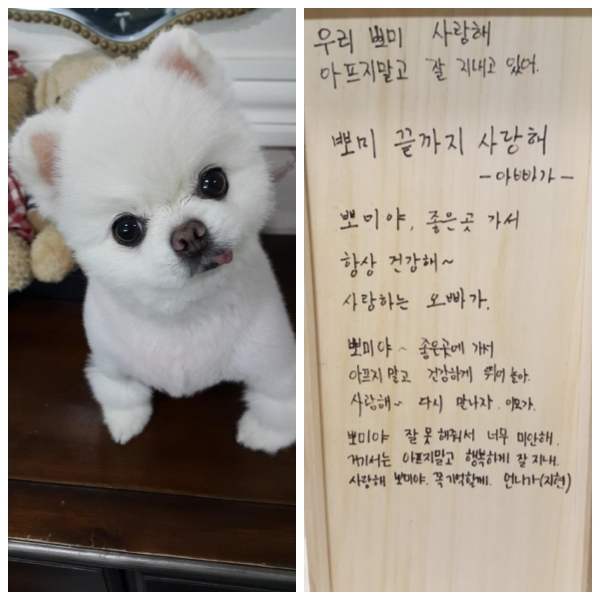 우리 뽀미 사랑해
아프지말고 잘 지내고 있어.
뽀미 끝까지 사랑해
-아빠가-
뽀미야, 좋은곳 가서
항상 건강해~
사랑하는 오빠가.
뽀미야~ 좋은곳에 가서
아프지말고 건강하게 뛰어 놀아.
사랑해~ 다시 만나자. 이모가.
뽀미야 잘 못 해줘서 너무 미안해.
거기서는 아프지말고 행복하게 잘 지내.
사랑해 뽀미야. 꼭 기억할게. 언니가(지현)